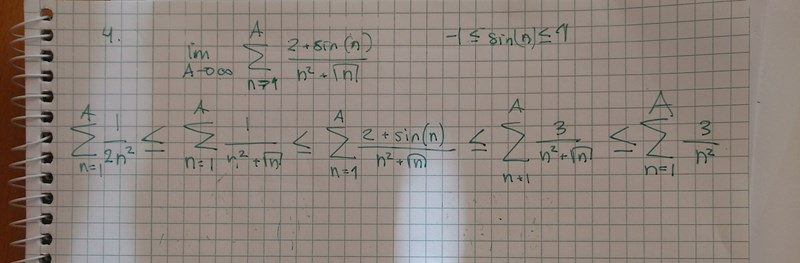 4. lim A→∞ ∑_{n=1}^{A} (2+sin(n))/(n²+√n) -1≤sin(n)≤1
∑_{n=1}^{A} 1/(2n²) ≤ ∑_{n=1}^{A} 1/(n²+√n) ≤ ∑_{n=1}^{A} (2+sin(n))/(n²+√n) ≤ ∑_{n+1}^{A} 3/(n²+√n) ≤ ∑_{n=1}^{A} 3/n²